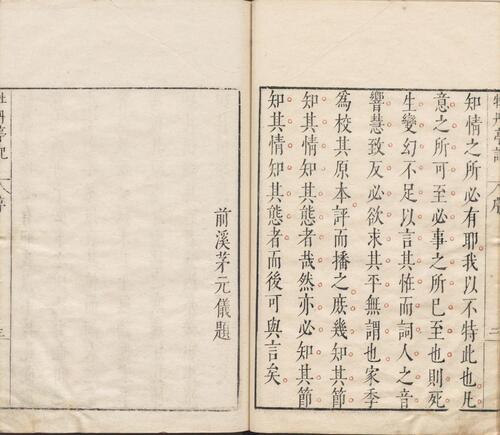 牡丹亭記
序
二
知情之所必有耶我以不特此也凡
意之所可至必事之所已至也則死
生變幻不足以言其怪而詞人之音
響慧致反必欲求其平無謂也家季
為校其原本評而播之庶幾知其節
知其情知其態者哉然亦必知其節
知其情知其態者而後可與言矣
前溪茅元儀題
牡丹亭記
序
三